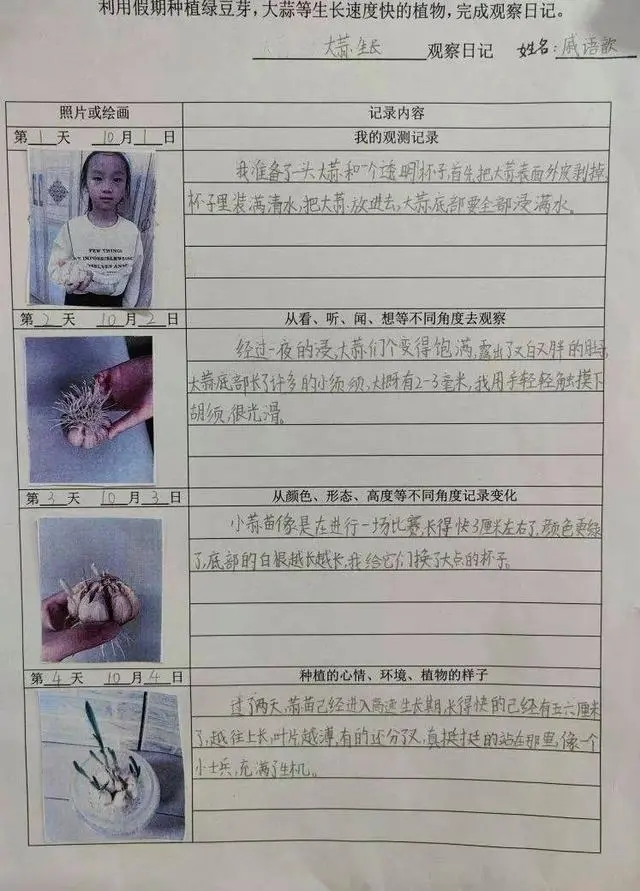 利用假期种植绿豆芽，大蒜等生长速度快的植物，完成观察日记。
大蒜生长 观察日记 姓名：戚语歆
照片或绘画 记录内容
第1天 10月1日 我的观测记录
我准备了一头大蒜和一个透明杯子，首先把大蒜表面外皮剥掉，
杯子里装满清水，把大蒜放进去，大蒜底部要全部浸满水。
FEW THINGS
第2天 10月2日 从看、听、闻、想等不同角度去观察
经过一夜的浸，大蒜们个变得饱满，露出了又白又胖的肚
大蒜底部长了许多的小须须，大概有2-3毫米，我用手轻轻触摸下
胡须，很光滑。
第3天 10月3日 从颜色、形态、高度等不同角度记录变化
小蒜苗像是在进行一场比赛，长得快3厘米左右了，颜色更绿
了，底部的白根越长越长，我给它们换了大点的杯子。
第4天 10月4日 种植的心情、环境、植物的样子
过了两天，蒜苗已经进入高速生长期，长得快的已经有五六厘米
了，越往上长，叶片越薄，有的还分了叉，真挺挺的站在那里，像一个
小士兵，充满了生机。